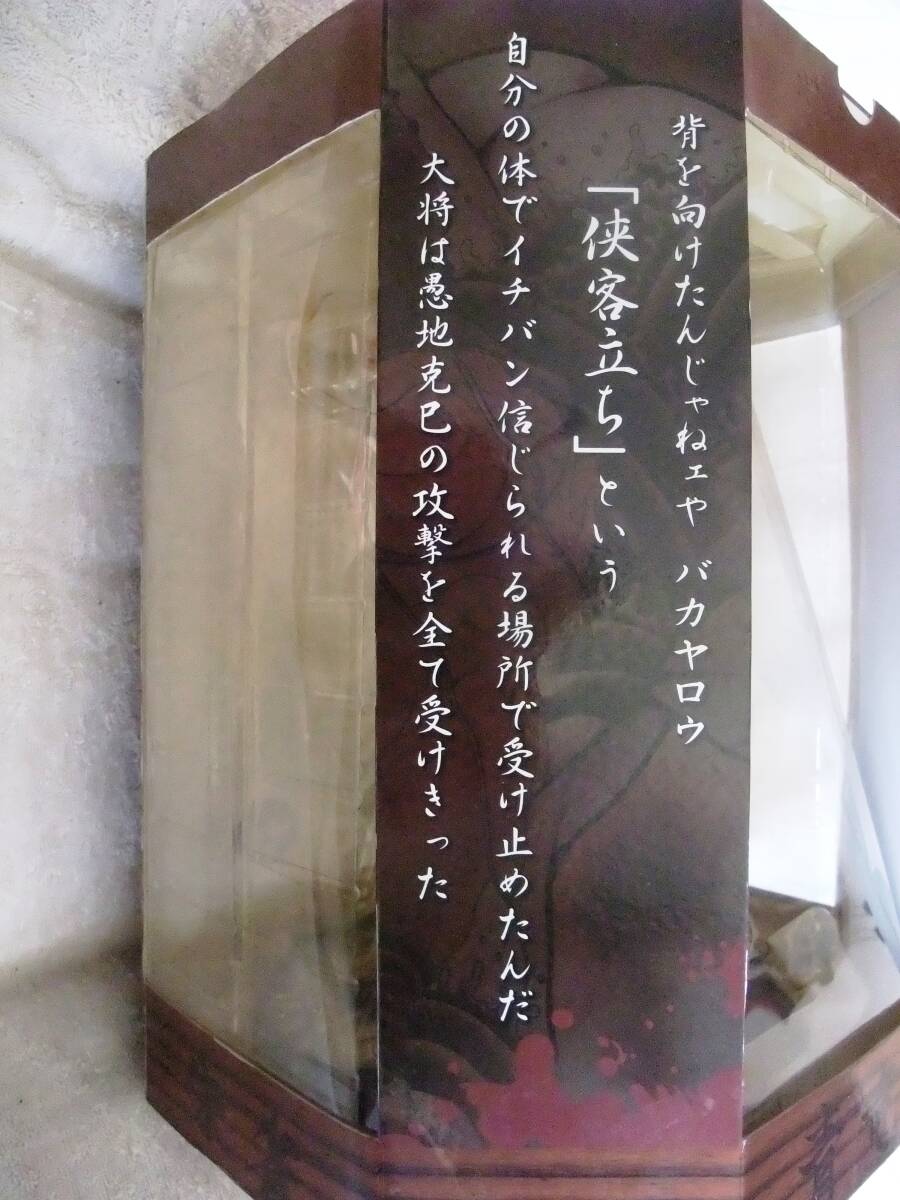 背を向けたんじゃねェや バカヤロウ
「侠客立ち」という
自分の体でイチバン信じられる場所で受け止めたんだ
大将は愚地克巳の攻撃を全て受けきった